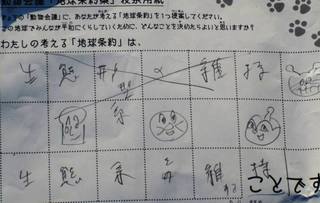 「動物会議」「地球条約案」投票用紙
の「動物会議」に、あなたが考える「地球条約」を1つ提案してください。
の地球でみんなが平和にくらしていくために、どんなことを決めたらよいと思いますか?
わたしの考える「地球条約」は、
生 態 の 維 持
系
生 態 系 の 維 持
する ことです